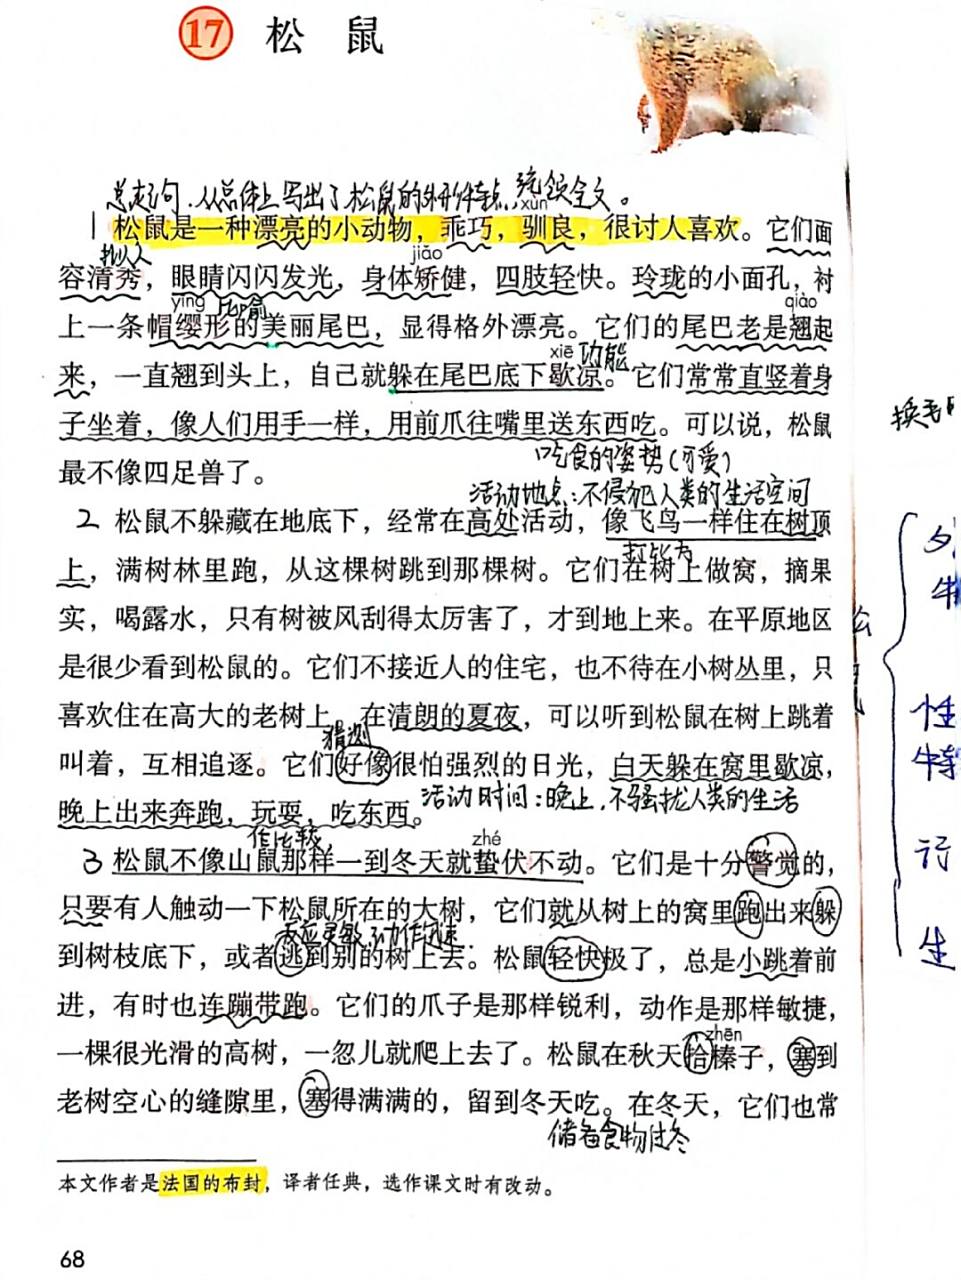 17 松 鼠
总起句，从总体上写出了松鼠的外形特点，统领全文。
xùn
1 松鼠是一种漂亮的小动物，乖巧，驯良，很讨人喜欢。它们面
拟人 jiǎo
容清秀，眼睛闪闪发光，身体矫健，四肢轻快。玲珑的小面孔，衬
yīng 比喻 qiào
上一条帽缨形的美丽尾巴，显得格外漂亮。它们的尾巴老是翘起
xiē 功能
来，一直翘到头上，自己就躲在尾巴底下歇凉。它们常常直竖着身
换毛
子坐着，像人们用手一样，用前爪往嘴里送东西吃。可以说，松鼠
吃食的姿势（可爱）
最不像四足兽了。
活动地点：不侵犯人类的生活空间
2 松鼠不躲藏在地底下，经常在高处活动，像飞鸟一样住在树顶
打比方
上，满树林里跑，从这棵树跳到那棵树。它们在树上做窝，摘果
实，喝露水，只有树被风刮得太厉害了，才到地上来。在平原地区
是很少看到松鼠的。它们不接近人的住宅，也不待在小树丛里，只
喜欢住在高大的老树上。在清朗的夏夜，可以听到松鼠在树上跳着
猜测
叫着，互相追逐。它们好像很怕强烈的日光，白天躲在窝里歇凉，
晚上出来奔跑，玩耍，吃东西。
活动时间：晚上，不骚扰人类的生活
作比较 zhé
3 松鼠不像山鼠那样一到冬天就蛰伏不动。它们是十分警觉的，
只要有人触动一下松鼠所在的大树，它们就从树上的窝里跑出来躲
反应灵敏，动作迅速
到树枝底下，或者逃到别的树上去。松鼠轻快极了，总是小跳着前
进，有时也连蹦带跑。它们的爪子是那样锐利，动作是那样敏捷，
zhēn
一棵很光滑的高树，一忽儿就爬上去了。松鼠在秋天拾榛子，塞到
老树空心的缝隙里，塞得满满的，留到冬天吃。在冬天，它们也常
储备食物过冬
本文作者是法国的布封，译者任典，选作课文时有改动。
68
性
特
行
生